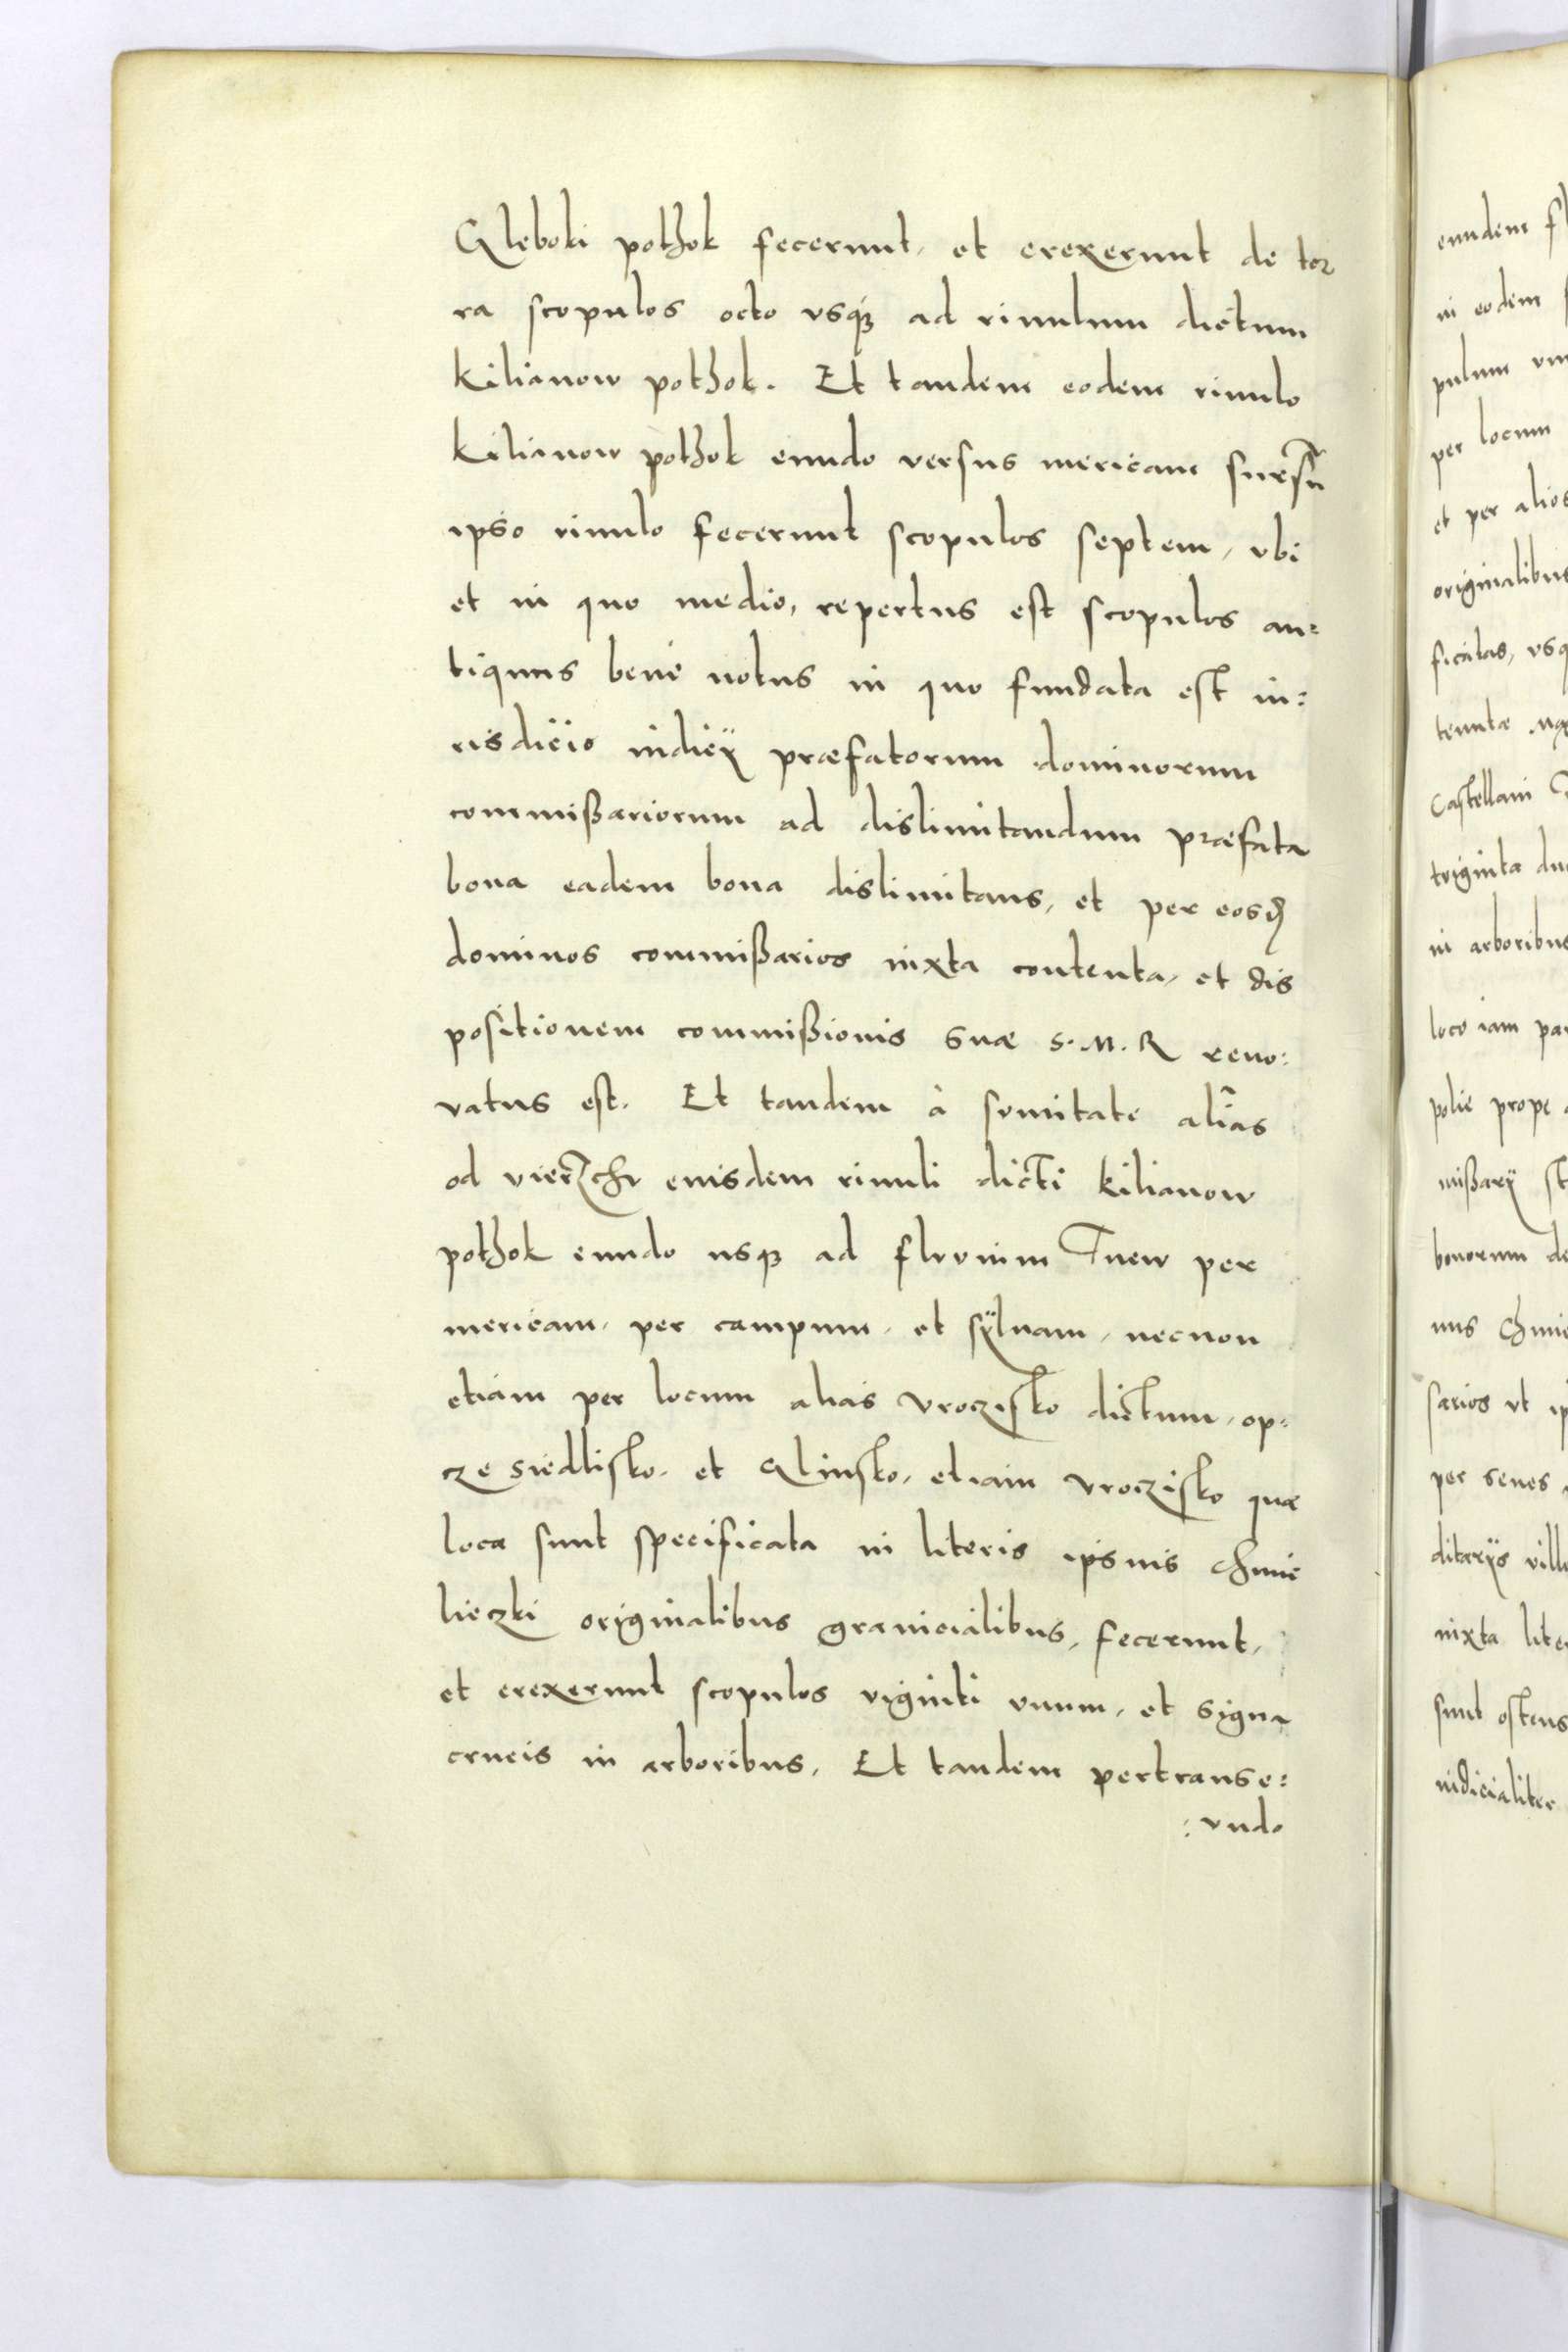 Gleboki pothok fecerunt, et erexerunt de ter
ra scopulos octo vsq3 ad riuulum dictum
Kilianow pothok. Et tandem eodem riuulo
Kilianow pothok eundo versus mericam sursũ
ipso riuulo fecerunt scopulos septem, vbi
et in quo medio, repertus est scopulos an=
tiquus bene notus in quo fundata est iu:
risdicio iudicÿ præfatorum dominorum
commißariorum ad dislimitandum præfata
bona eadem bona dislimitans, et per eosd
dominos commißarios iuxta contenta, et dis
positionem commißionis suæ S. M. R reno:
vatus est. Et tandem à somitate alias
od vierzchv eiusdem riuuli dicti Kilianow
pothok eundo usq3 ad fluvium Tnew per
mericam, per campum, et sÿluam, necnon
etiam per locum alias vroczisko dictum, op=
cze siedlisko, et Glinsko, etiam vroczisko quæ
loca sunt specificata in literis ipsius Chmie
lieczki originalibus granicialibus, fecerunt,
et erexerunt scopulos viginti vnum, et signa
crucis in arboribus, Et tandem pertranse:
: vndo
eundem
in eodem
pulum
per locum
et per alios
originalibus
ficatas,
tenutæ
Castellani
triginta
in arboribus
loco iam
polie prope
mißarÿ
bonorum de
nus
sarios vt
per senes
ditarÿs
iuxta
sunt
iudicialiter